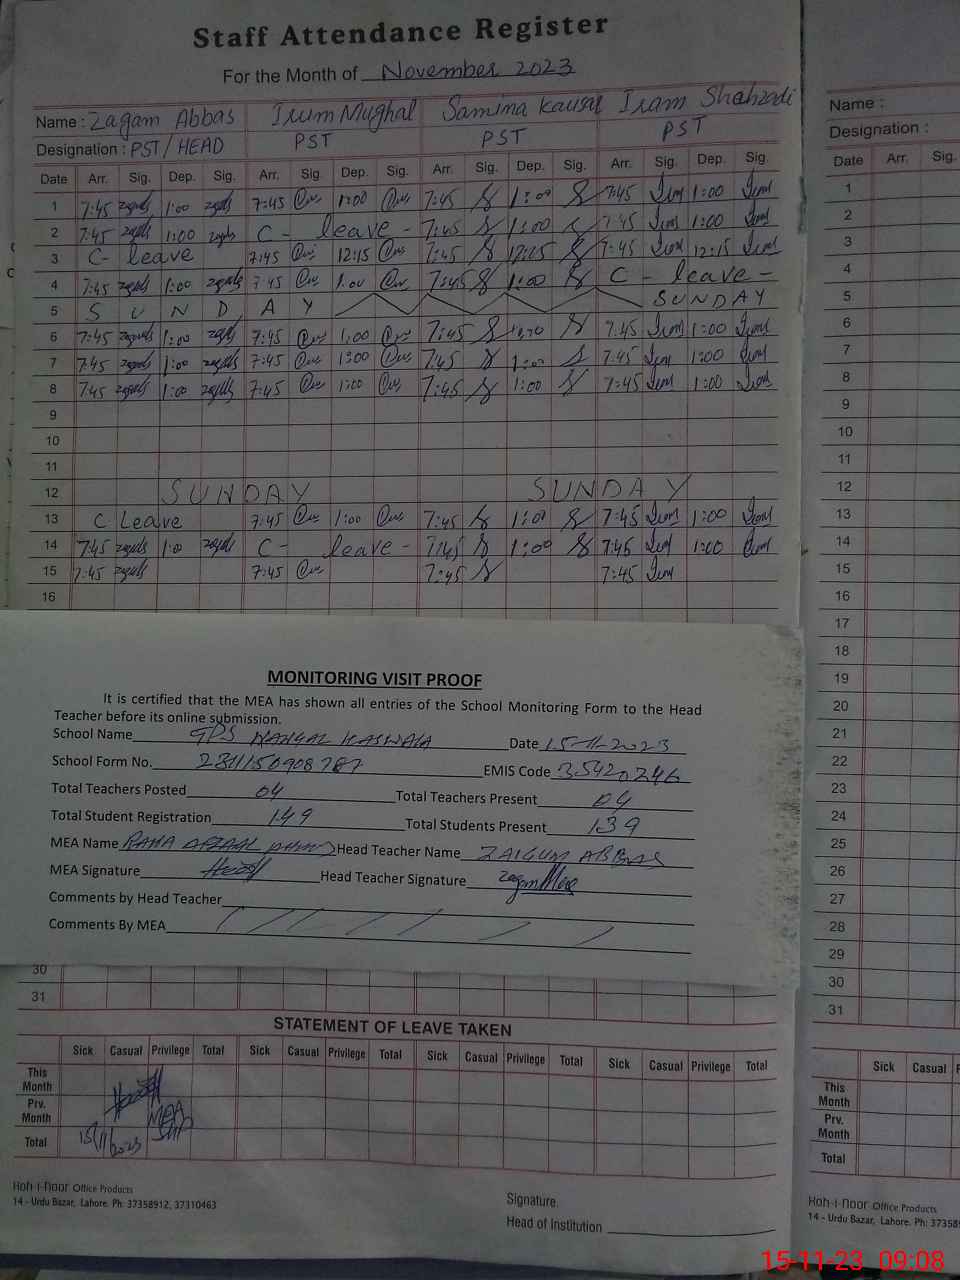 Staff Attendance Register
For the Month of November 2023
Name : Zagam Abbas Irum Mughal Samina Kausar Iram Shahzadi
Designation : PST/HEAD PST PST PST
Date Arr. Sig. Dep. Sig. Arr. Sig. Dep. Sig. Arr. Sig. Dep. Sig. Arr. Sig. Dep. Sig.
1 7:45 1:00 7:45 1:00 7:45 1:00 7:45 1:00
2 7:45 1:00 C - leave - 7:45 1:00 7:45 1:00
3 C- leave 7:45 12:15 7:45 12:15 7:45 12:15
4 7:45 1:00 7:45 1:00 7:45 1:00 C - leave -
5 S U N D A Y SUNDAY
6 7:45 1:00 7:45 1:00 7:45 7:45 1:00
7 7:45 1:00 7:45 1:00 7:45 1:00 7:45 1:00
8 7:45 1:00 7:45 1:00 7:45 1:00 7:45 1:00
9
10
11
12 SUNDAY SUNDAY
13 C Leave 7:45 1:00 7:45 1:00 7:45 1:00
14 7:45 1:00 C- leave - 7:45 1:00 7:45 1:00
15 7:45 7:45 7:45 7:45
16
MONITORING VISIT PROOF
It is certified that the MEA has shown all entries of the School Monitoring Form to the Head
Teacher before its online submission.
School Name GPS NANGAL Date 15-11-2023
School Form No. EMIS Code 35420246
Total Teachers Posted 04 Total Teachers Present 04
Total Student Registration 149 Total Students Present 139
MEA Name RANA Head Teacher Name ZAIGUM ABBAS
MEA Signature Head Teacher Signature
Comments by Head Teacher
Comments By MEA
30
31
STATEMENT OF LEAVE TAKEN
Sick Casual Privilege Total Sick Casual Privilege Total Sick Casual Privilege Total Sick Casual Privilege Total
This Month
Prv. Month
MEA
Total
15/11/2023
Hoh-i-noor Office Products
14 - Urdu Bazar, Lahore. Ph: 37358912, 37310463
Signature.
Head of Institution
Name :
Designation :
Date Arr. Sig.
1
2
3
4
5
6
7
8
9
10
11
12
13
14
15
16
17
18
19
20
21
22
23
24
25
26
27
28
29
30
31
Sick Casual
This Month
Prv. Month
Total
Hoh-i-noor Office Products
14 - Urdu Bazar, Lahore. Ph: 3735
15-11-23 09:08